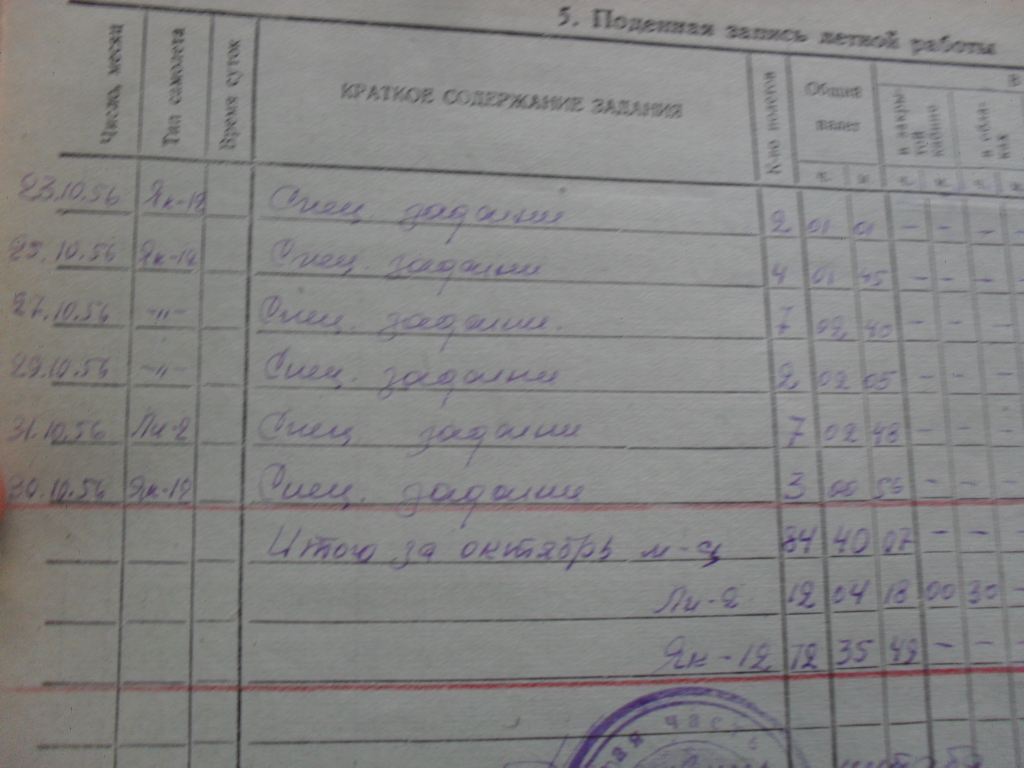 5. Поденная запись летной работы
Число, месяц Тип самолета Время суток КРАТКОЕ СОДЕРЖАНИЕ ЗАДАНИЯ К-во полетов Общий налет в закрытой кабине в облаках
23.10.56 Як-12 Спец. задание 2 01 01 - - - -
25.10.56 Як-12 Спец. задание 4 01 45 - - - -
27.10.56 -"- Спец. задание. 7 02 40 - - -
29.10.56 -"- Спец. задание 2 02 05 - - -
31.10.56 Ли-2 Спец. задание 7 02 48 - - - -
30.10.56 Як-12 Спец. задание 3 00 56 - - - -
Итого за октябрь м-ц 84 40 07 - - - -
Ли-2 12 04 18 00 30 -
Як-12 72 35 49 - - - -
часть